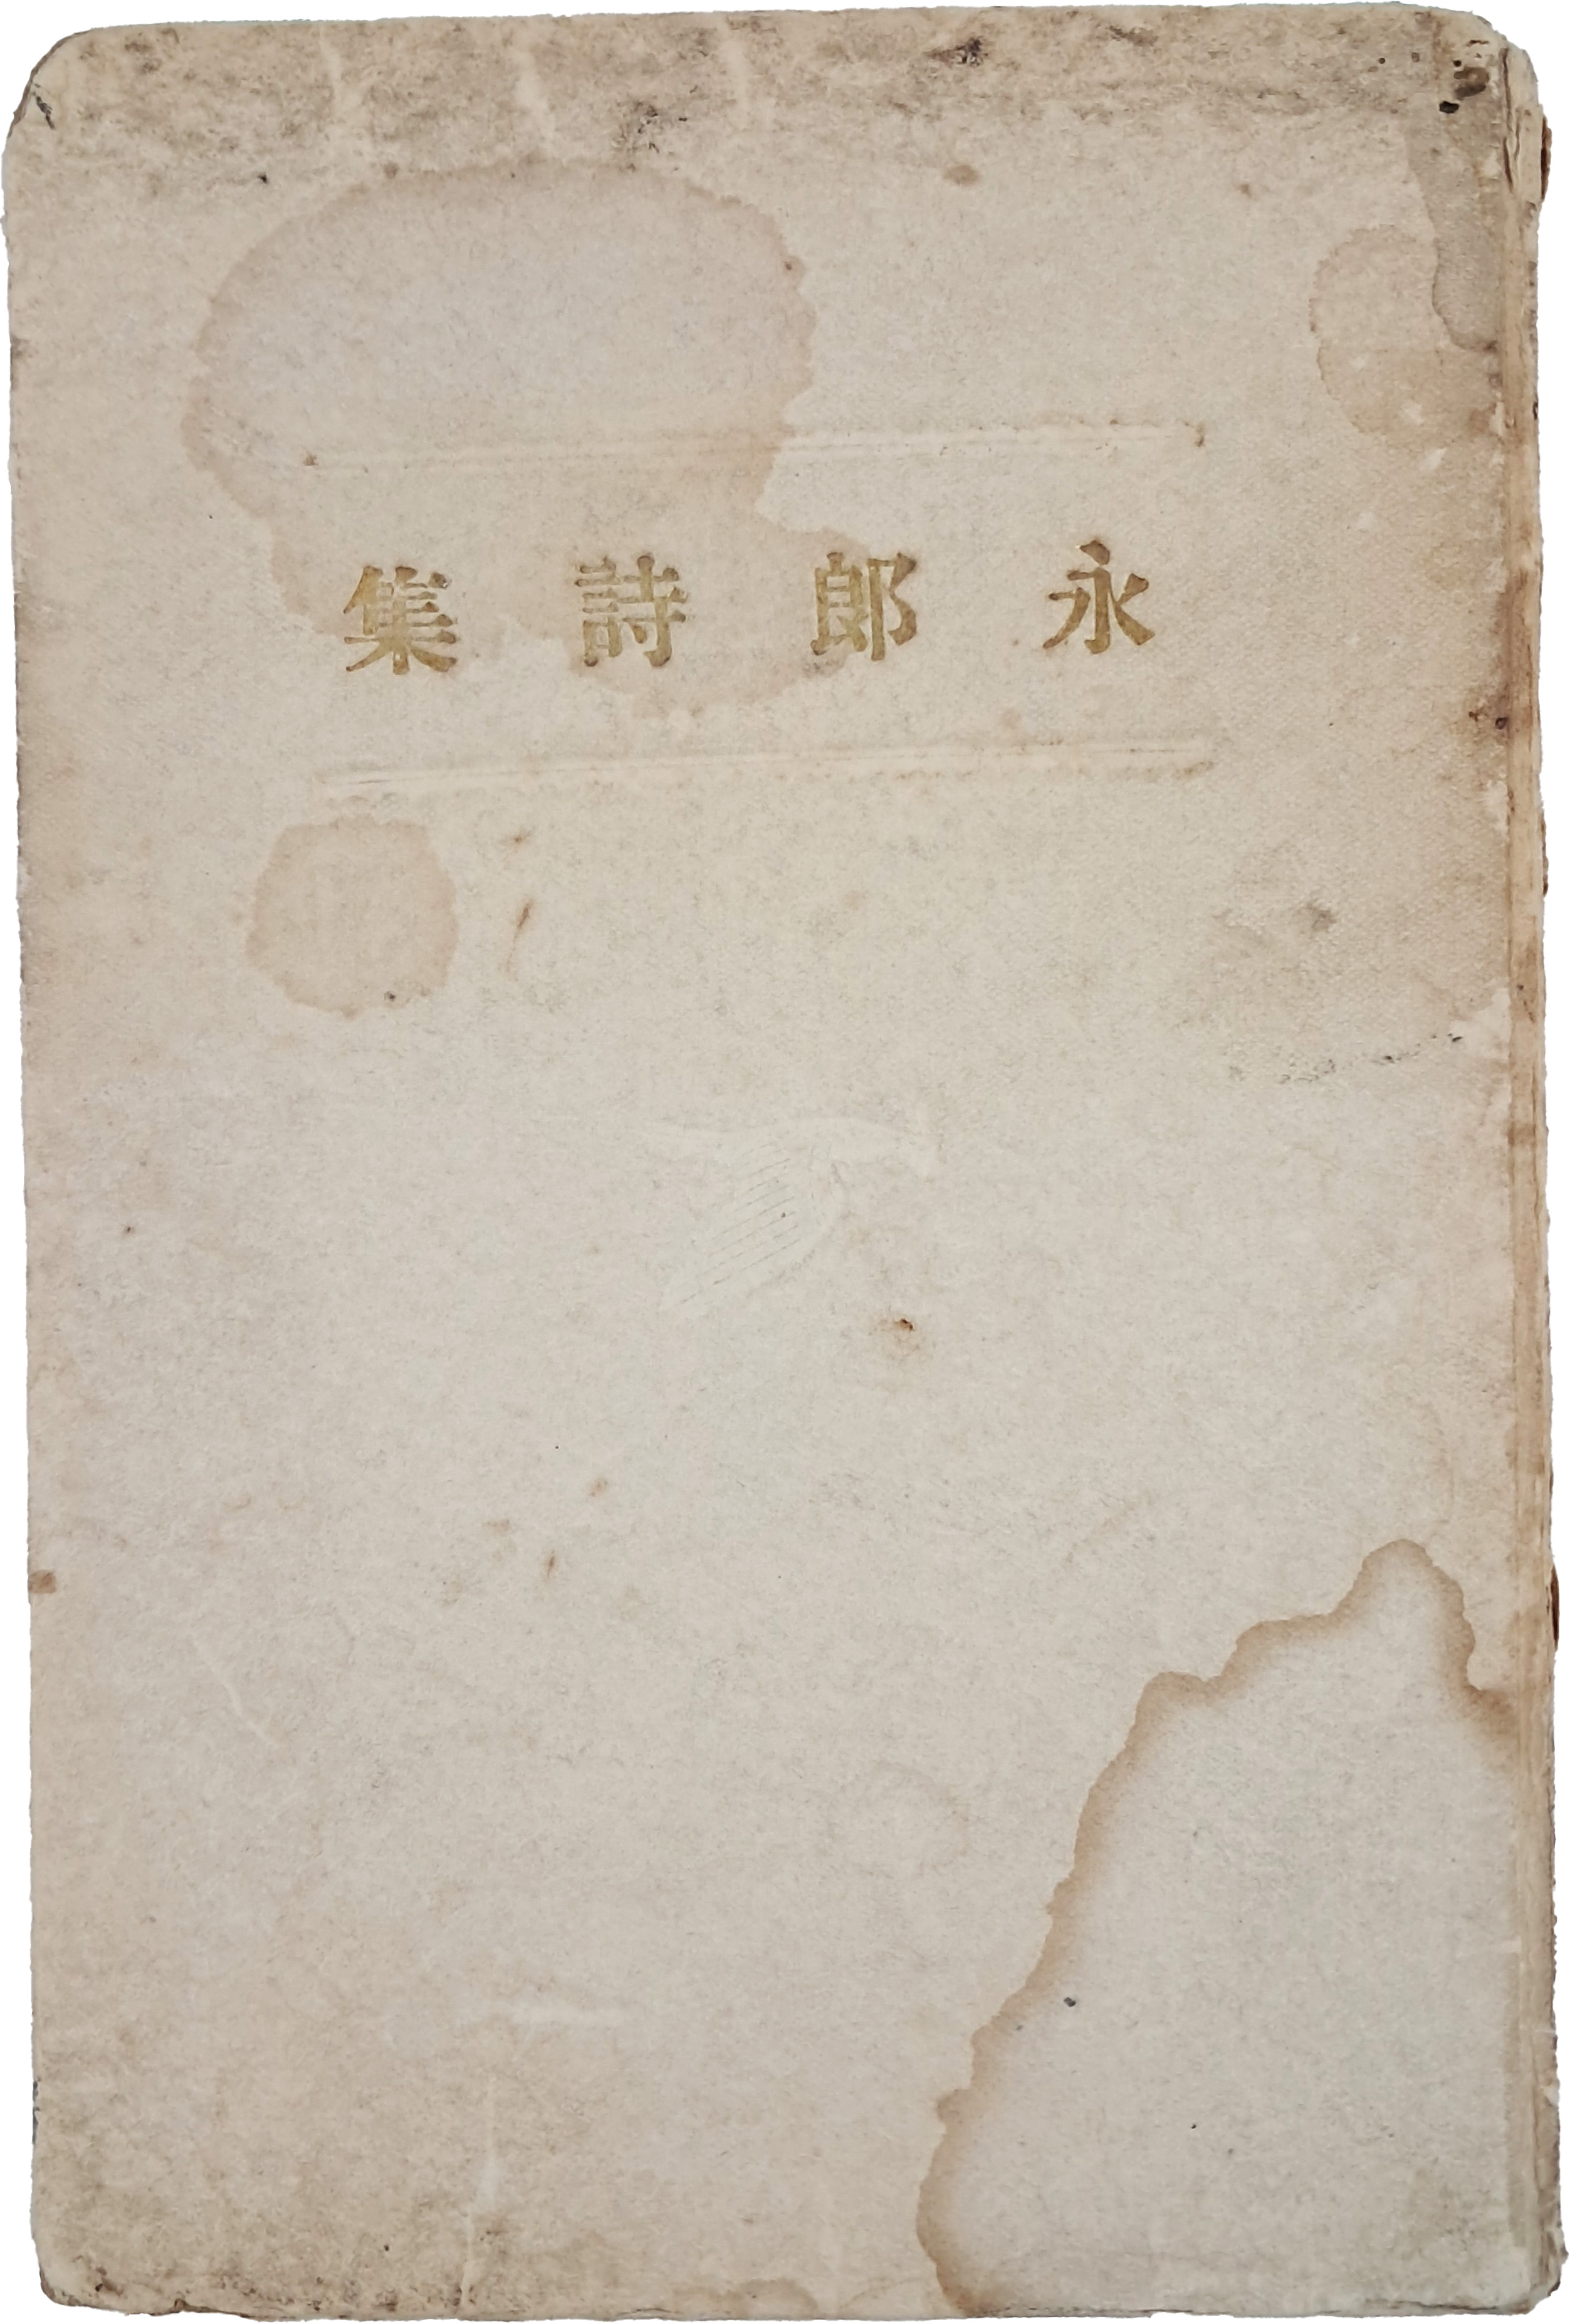 永郎詩集